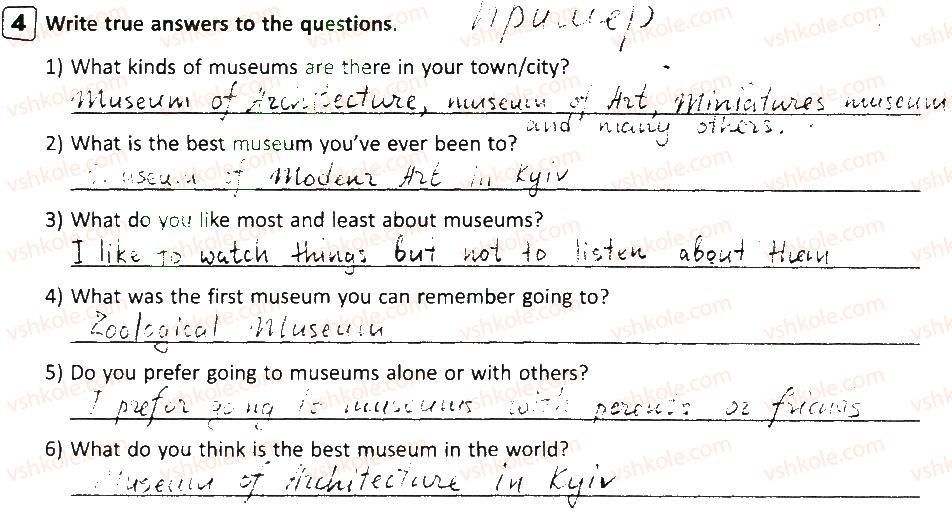 4 Write true answers to the questions. пример
1) What kinds of museums are there in your town/city?
Museum of Architecture, museum of Art, Miniatures museum
and many others.
2) What is the best museum you've ever been to?
Museum of Modenr Art in Kyiv
3) What do you like most and least about museums?
I like to watch things but not to listen about them
4) What was the first museum you can remember going to?
Zoological Museum
5) Do you prefer going to museums alone or with others?
I prefer going to museums with perents or friends
6) What do you think is the best museum in the world?
Museum of Architecture in Kyiv